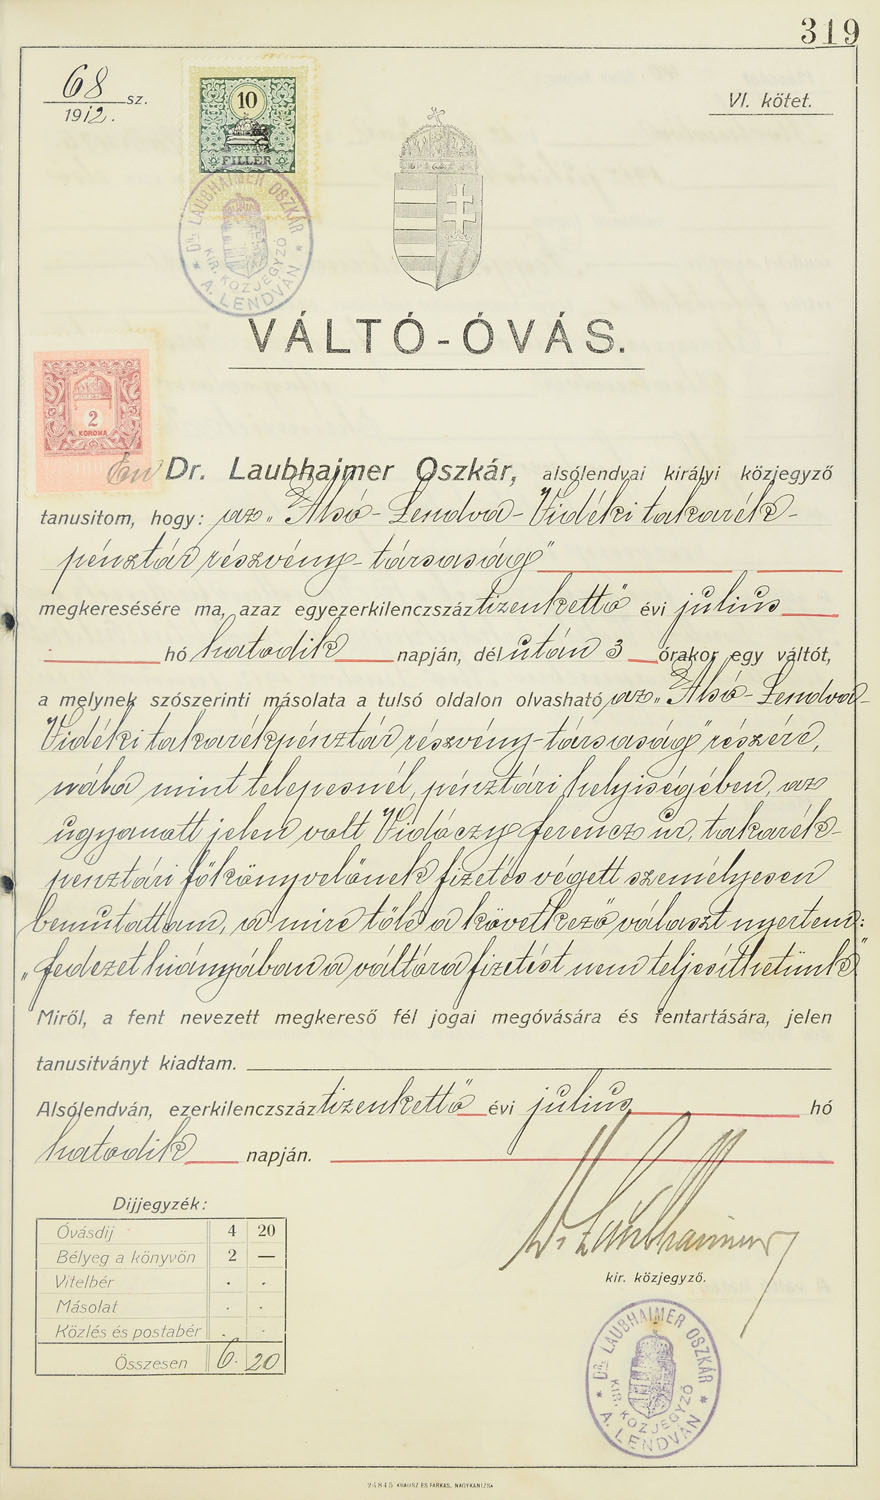 319
68 sz.
1912.
VI. kötet.
10
FILLÉR
Dr. LAUBHAIMER OSZKÁR
KIR. KÖZJEGYZŐ
* A. LENDVÁN *
VÁLTÓ-ÓVÁS.
2
KORONA
Én Dr. Laubhaimer Oszkár, alsólendvai királyi közjegyző
tanusitom, hogy: az „Alsó-Lendva-Vidéki takarék-
pénztár részvény-társaság"
megkeresésére ma, azaz egyezerkilenczszáz tizenkettő évi julius
hó hatodik napján, dél után 3 órakor egy váltót,
a melynek szószerinti másolata a tulsó oldalon olvasható az „Alsó-Lendva-
Vidéki takarékpénztár részvény-társaság" részére,
mint telepesnél, pénztári helyiségében, az
ugyanott jelen volt Vidóczy Ferencz úr, takarék-
pénztári főkönyvelőnek fizetés végett személyesen
bemutattam, a mire tőle a következő választ nyertem:
„fedezet hiányában a váltóra fizetést nem teljesíthetünk"
Miről, a fent nevezett megkereső fél jogai megóvására és fentartására, jelen
tanusitványt kiadtam.
Alsólendván, ezerkilenczszáz tizenkettő évi julius hó
hatodik napján.
Dr Laubhaimer
kir. közjegyző.
Dijjegyzék:
Óvásdij 4 20
Bélyeg a könyvön 2 —
Vitelbér . .
Másolat . .
Közlés és postabér . .
Összesen 6. 20
Dr. LAUBHAIMER OSZKÁR
KIR. KÖZJEGYZŐ
* A. LENDVÁN *
24845 KRAUSZ ÉS FARKAS, NAGYKANIZSA